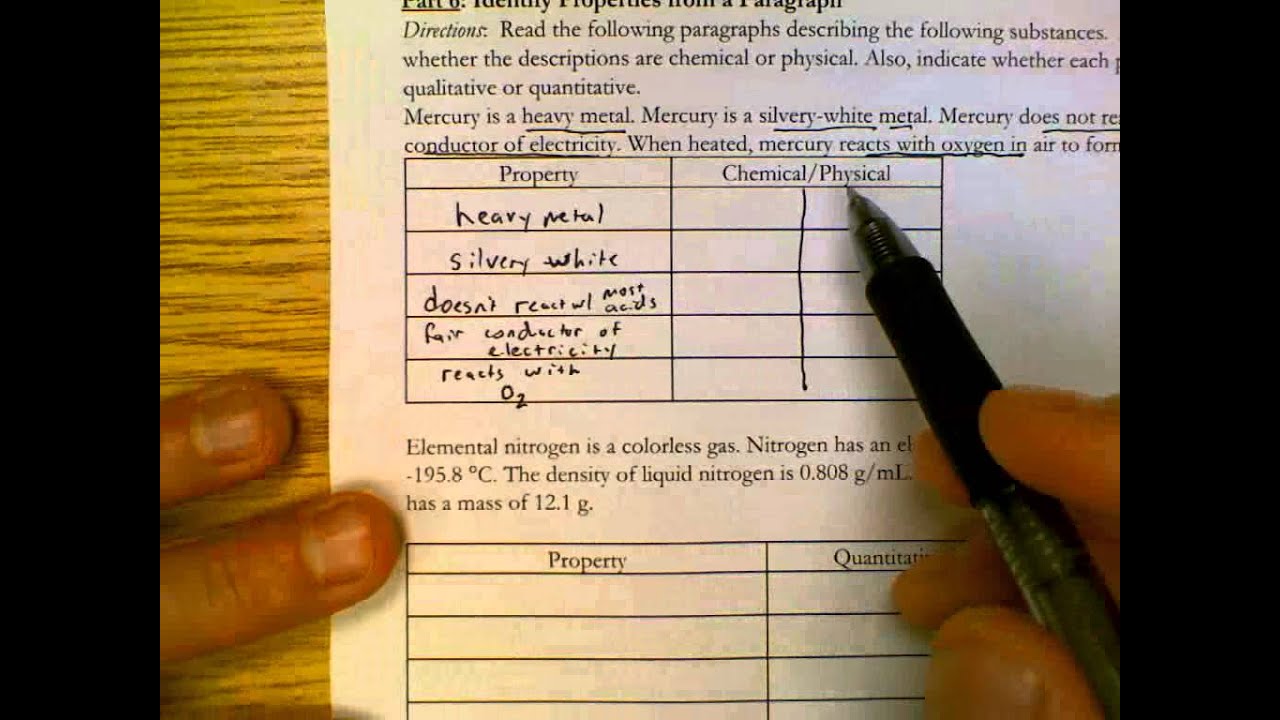 Part 6: Identify Properties from a Paragraph
Directions: Read the following paragraphs describing the following substances.
whether the descriptions are chemical or physical. Also, indicate whether each
qualitative or quantitative.
Mercury is a heavy metal. Mercury is a silvery-white metal. Mercury does not
conductor of electricity. When heated, mercury reacts with oxygen in air to
Property Chemical/Physical
heavy metal
silvery white
doesn't react w/ most acids
fair conductor of
electricity
reacts with
O2
Elemental nitrogen is a colorless gas. Nitrogen has an
-195.8 °C. The density of liquid nitrogen is 0.808 g/mL.
has a mass of 12.1 g.
Property